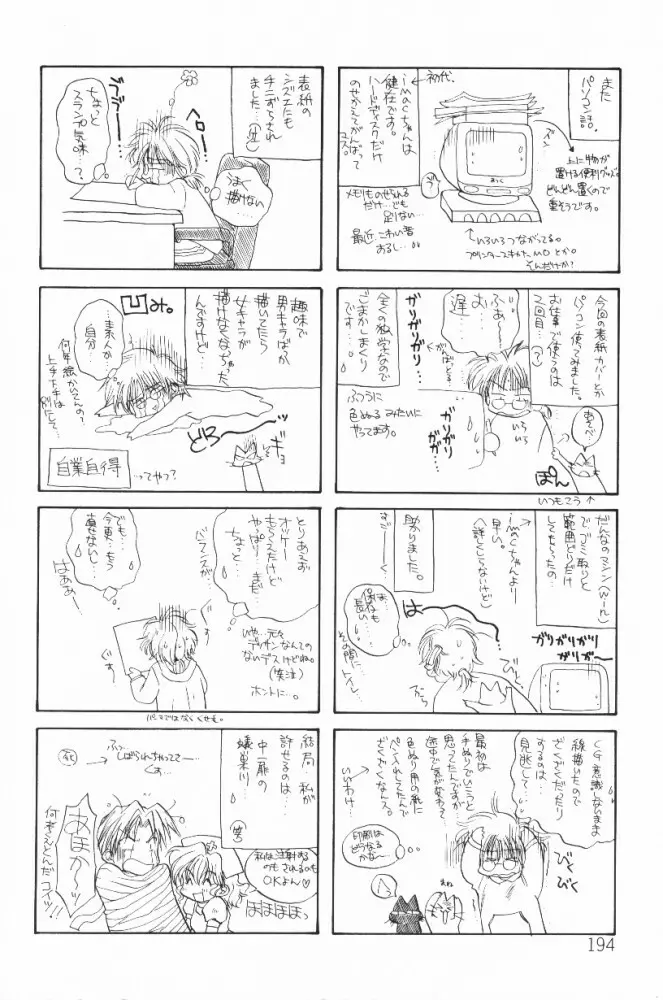 また
パソコン話。
初代。
imacちゃんは
健在です。
ハードディスクだけ
のせかえてがんばって
ます。
上に物が
置ける便利グッズ。
どんどん置くので
重そうです。
メモリものせれるだけ…でも
足りない…
最近こわい音
するし…
↑いろいろつながってる。
プリンタースキャナMOとか。
そんだけか?
今回の表紙カバーとか
パソコン使ってみました。
お仕事で使うのは
2回目…(?)
ぶあ〜
お…
遅…
ガリガリガリ…
←がんばってる…
全くの独学なので
ごまかしまくり
です。
ふつうに
色ぬるみたいに
やってます。
ガリガリ
ガガ…
いろいろ
あそべ…
ぽん
いつもこう↑
だんなのマシン(Win)
でゴミ取りと
範囲どりだけ
してもらったの…
imacちゃんより
早い。
(詳しくしらないけど)
助かりました。
すご〜く
保存も
長い…
その間に
は…
ガリガリガリ
ガリガ〜
びくっ
CG意識しないまま
線描いたので
ざくざくだったり
するのは…
見逃して…
最初は
手ぬりでいこうと
思ってたんですが
途中で気が変わって
色ぬり用の紙に
ペン入れしてたんで
ざくざくなんス。
いいわけ…
印刷は
どうなる
かな〜
びくびく
表紙の
シズエにも
チェずらされ
ました…(泣)
ちょっと
スランプ気味
…?
ヘロ〜
うまく
描けない…
趣味で
男キャラばか
描いてたら
女キャラが
描けなくなっちゃった
んですけど…
凹み。
…素人か
自分…
何年絵かいてんの?
上手下手は
別にして…
どろ〜〜ッ
ギョ
自業自得
…ってやつ?
とりあえず
オッケー
もらえたけど
やっぱりまだ
ちょっと…
バランスが…
でも…
今更…もう
直せないし…
はああ〜
いや…元々
デッサンなんての
ないデスけどね。
(笑泣)
ホントに…。
結局…私が
許せるのは
中一扉の
蟻巣川…
(笑)
ふっ…
しばられちゃってて…
くす…
(死)
あほか〜ッ
何考えとんだコイツ!!
私は注射する
のもされるのも
OKよん♡
ほほほほっ
194